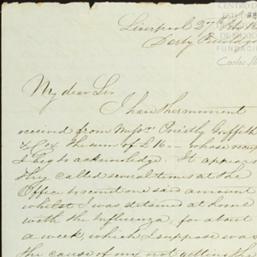 Liverpool 2nd Feb
Derby Buildings
CENTRO D
DE
FUNDACI
My dear Sir
I have this moment
received from Messrs Priestly Griffith
& Co the sum of £16 — whose
I beg to acknowledge. It appears
they called several times at the
Office to remit me said amount
whilst I was detained at home
with the Influenza, for about
a week, which I suppose was
the cause of my not getting the